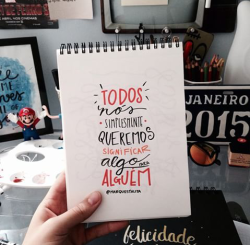 TODOS
nós
SIMPLESMENTE
QUEREMOS
SIGNIFICAR
algo PARA
ALGUÉM
JANEIRO
2015
felicidade